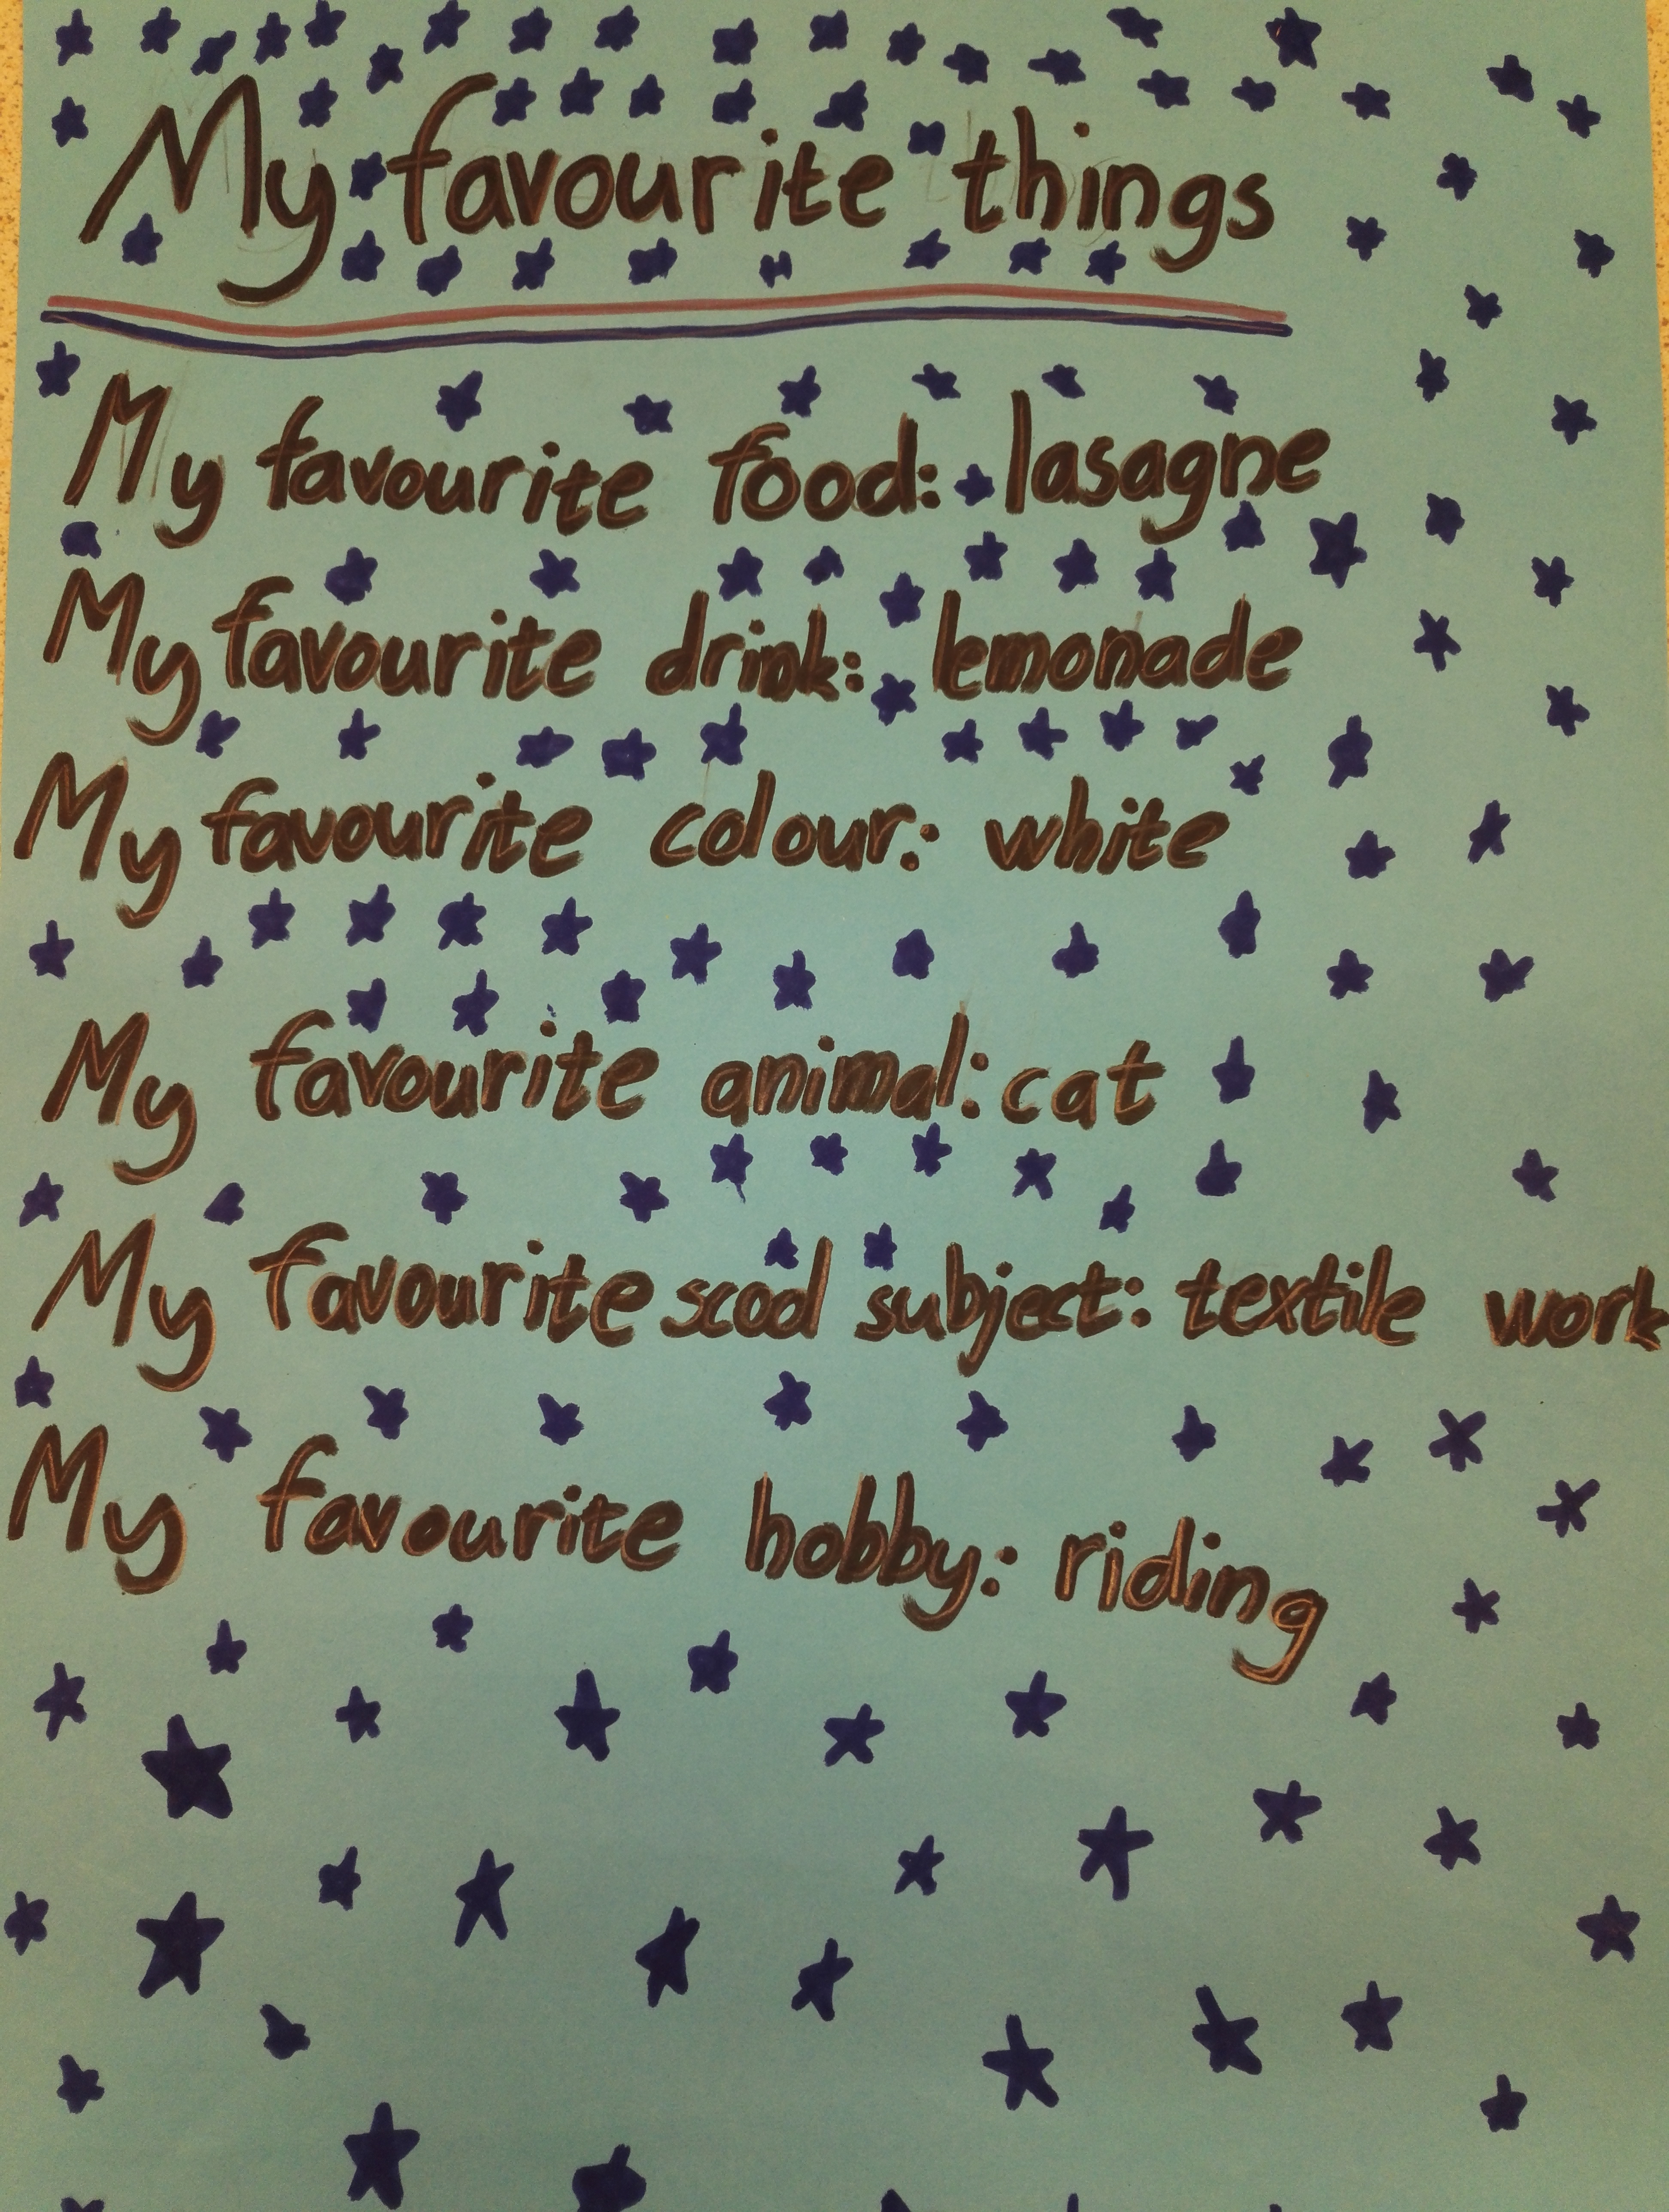 My favourite things
My favourite food: lasagne
My favourite drink: lemonade
My favourite colour: white
My favourite animal: cat
My favourite scool subject: textile work
My favourite hobby: riding